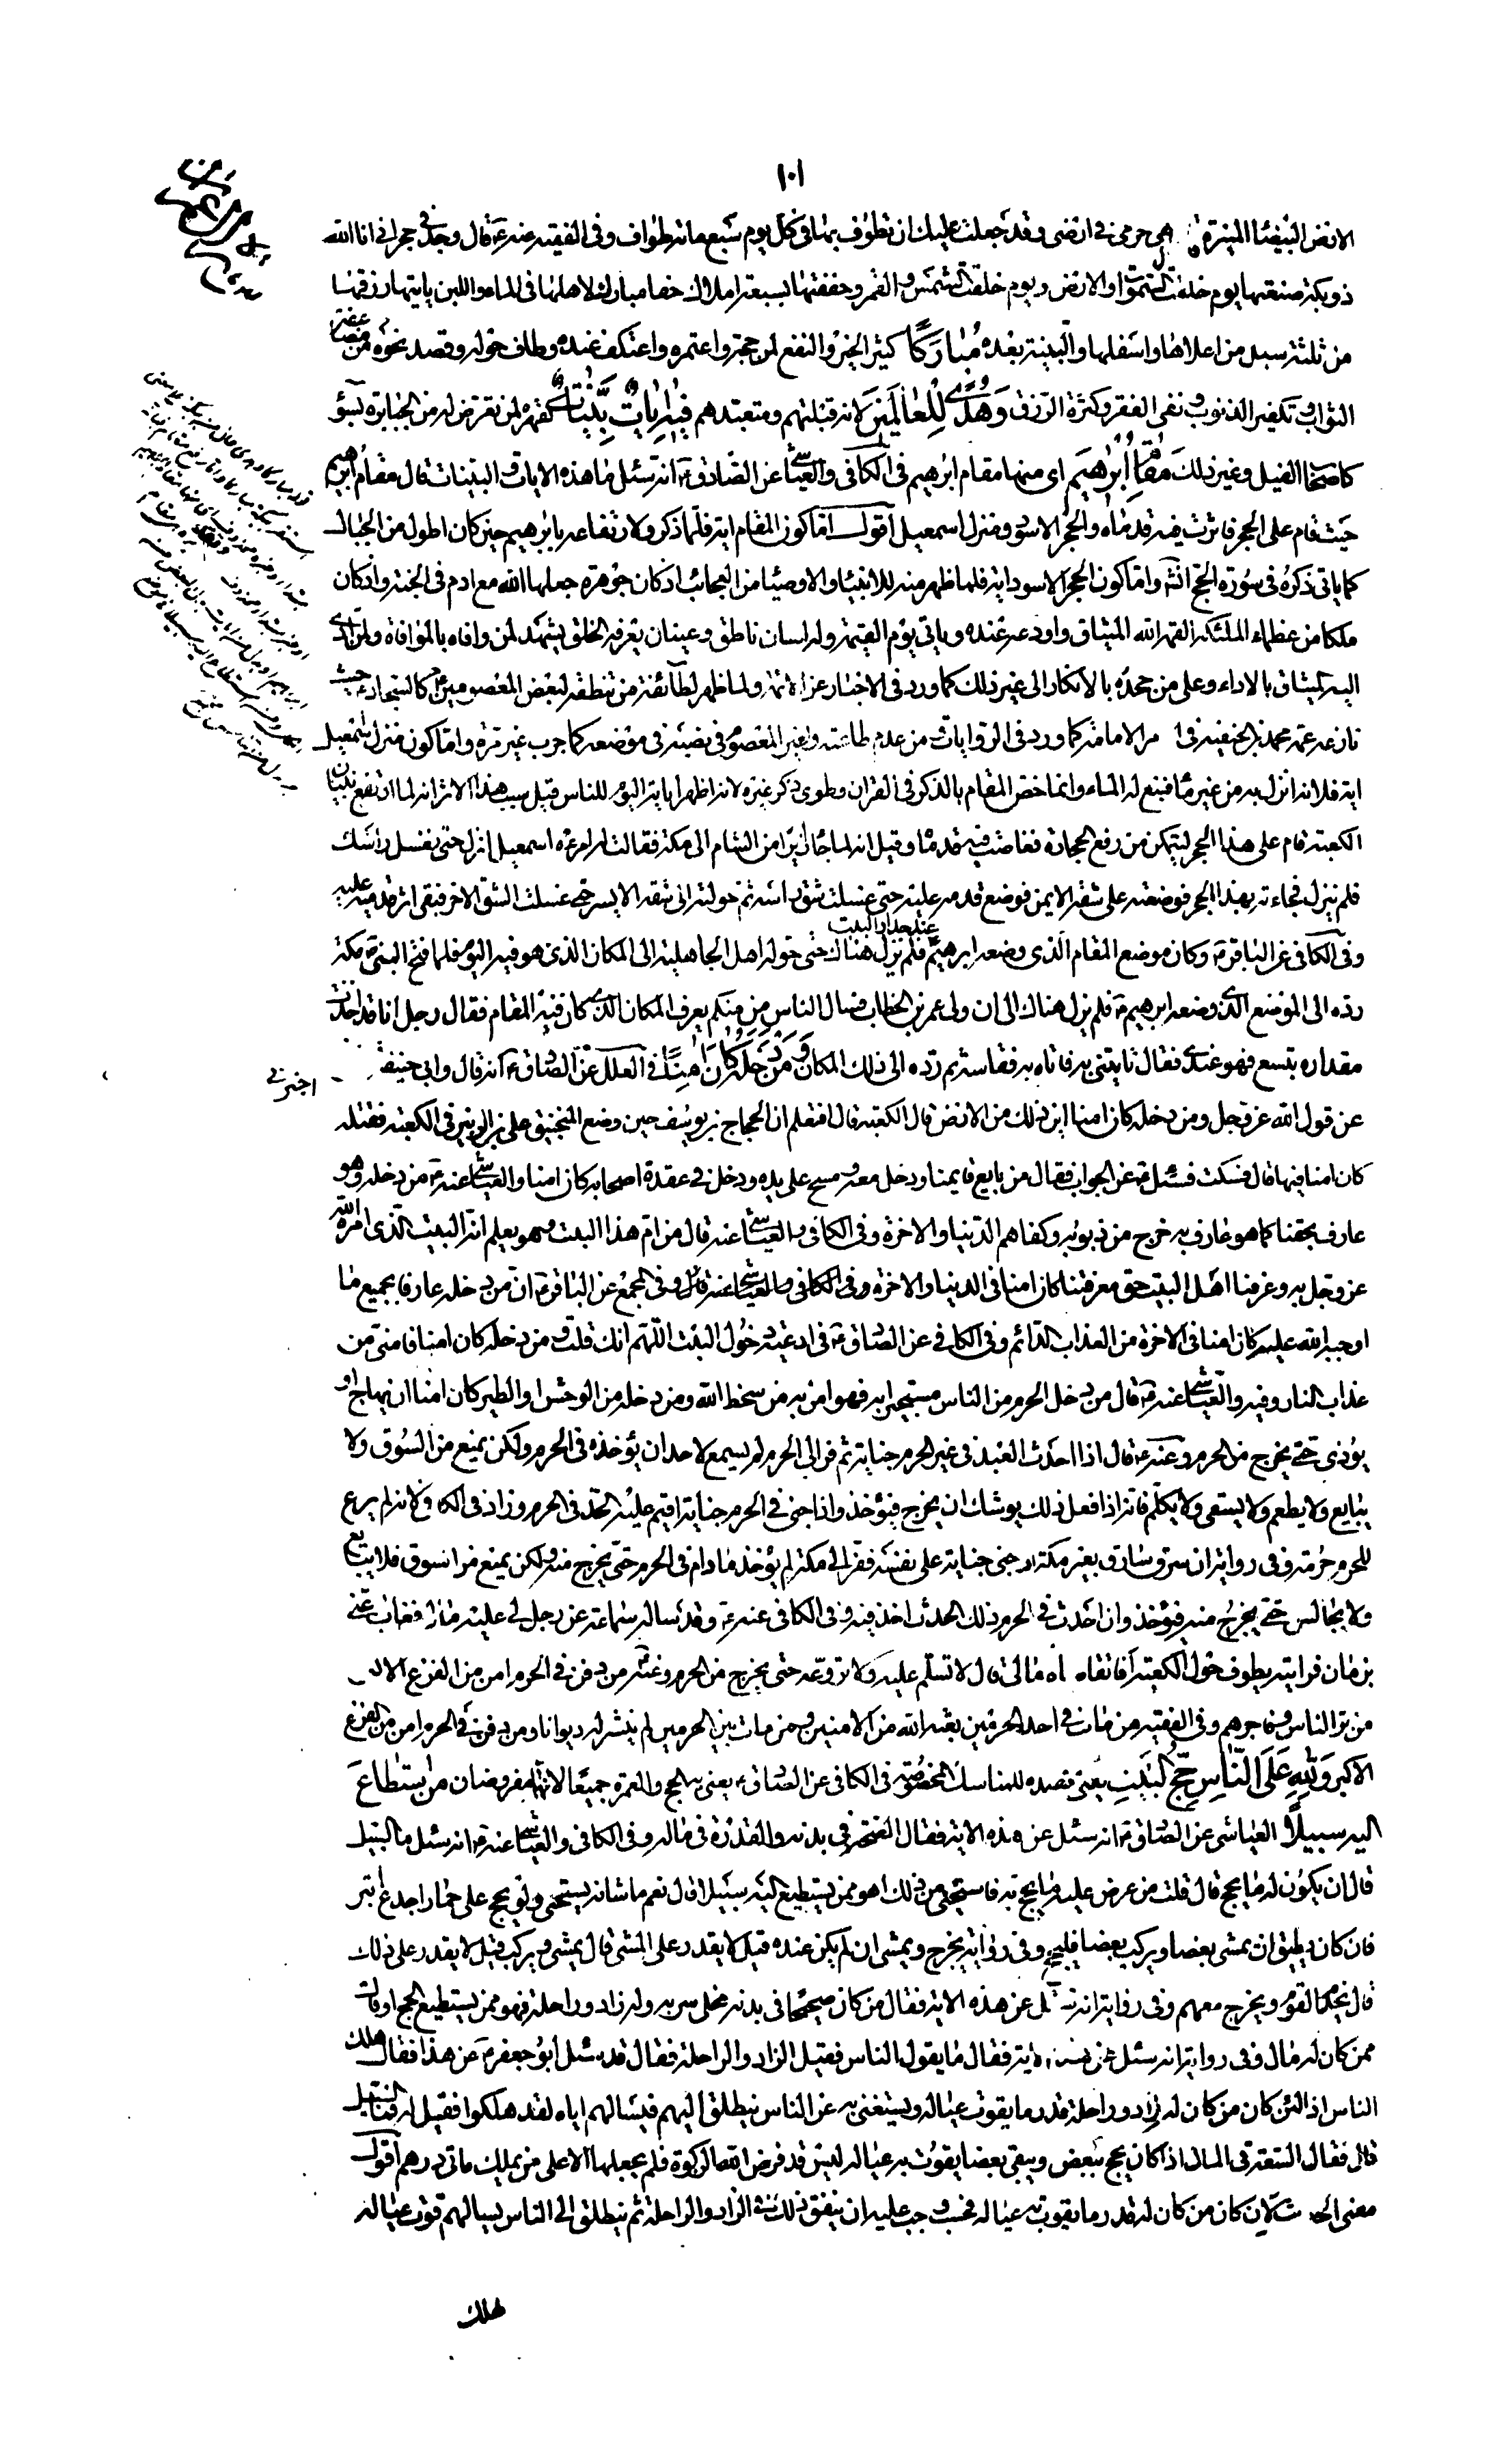 ١٠١
الارض البيضاء المنيرة هى حرمى فى ارضى وقد جعلت عليك ان تطوف بها فى كل يوم سبع مائة طواف وفى الفقيه عنه ع قال وجد فى حجر انى انا الله
ذو بكة صنعتها يوم خلقت السموات والارض ويوم خلقت الشمس والقمر وحففتها بسبعة املاك حفا مبارك لاهلها فى الماء واللبن ياتيها رزقها
من ثلثة سبل من اعلاها واسفلها والثنية بعده مُبارَكًا كثير الخير والنفع لمن حجه واعتمره واعتكف عنده وطاف حوله وقصد نحوه من مضاعفة
الثواب وتكفير الذنوب ونفى الفقر وكثرة الرزق وَهُدًى لِلْعالَمينَ لانه قبلتهم ومتعبدهم فيهِ اياتٌ بَيِّناتٌ كقهره لمن تعرض له من الجبابرة بسوء
كاصحاب الفيل وغير ذلك مَقامُ اِبْرهيمَ اى منها مقام ابرهيم فى الكافى والعياشى عن الصادق ع انه سئل ما هذه الايات البينات قال مقام ابرهيم
حيث قام على الحجر فاثرت فيه قدماه والحجر الاسود ومنزل اسمعيل اقول اما كون المقام اية فلما ذكر ولارتفاعه بابرهيم حين كان اطول من الجبال
كما ياتى ذكره فى سورة الحج انشاء واما كون الحجر الاسود اية فلما ظهر منه للانبياء والاوصياء من العجائب اذ كان جوهرة جعلها الله مع ادم فى الجنة واذ كان
ملكا من عظماء الملئكة القمه الله الميثاق واودعه عنده وياتى يوم القيمة وله لسان ناطق وعينان يعرفه الخلق يشهد لمن وافاه بالموافاة ولمن ادى
اليه الميثاق بالاداء وعلى من جحده بالانكار الى غير ذلك كما ورد فى الاخبار عن الائمة ولما ظهر لطائفة من تنطقه لبعض المعصومين كالسجاد ع حيث
نازعه عمه محمد بن الحنفية فى امر الامامة كما ورد فى الروايات ومن عدم طاعته لغير المعصوم فى نصبه فى موضعه كما جرب غير مرة واما كون منزل اسمعيل
اية فلانه انزل به من غير ماء فنبع له الماء وانما خص المقام بالذكر فى القران وطوى ذكر غيره لانه اظهر اياته اليوم للناس قيل سبب هذا الاثر انه لما ارتفع بنيان
الكعبة قام على هذا الحجر ليتمكن من رفع الحجارة فغاصت فيه قدماه وقيل انه لما جاء زائرا من الشام الى مكة فقالت له امرءة اسمعيل انزل حتى نغسل راسك
فلم ينزل فجاءته بهذا الحجر فوضعته على شقه الايمن فوضع قدمه عليه حتى غسلت شق راسه ثم حولته الى شقه الايسر حتى غسلت الشق الاخر فبقى اثر قدميه عليه
وفى الكافى عن الباقر ع وكان موضع المقام الذى وضعه ابرهيم ع عند جدار البيت فلم يزل هناك حتى حوله اهل الجاهلية الى المكان الذى هو فيه اليوم فلما فتح النبى ص مكة
رده الى الموضع الذى وضعه ابرهيم ع فلم يزل هناك الى ان ولى عمر بن الخطاب فسال الناس من منكم يعرف المكان الذى كان فيه المقام فقال رجل انا قد اخذت
مقداره بنسع فهو عندى فقال تاتينى به فاتاه به فقاسه ثم رده الى ذلك المكان وَمَنْ دَخَلَهُ كانَ امِنًا فى العلل عن الصادق ع انه قال لابى حنيفة اخبرنى
عن قول الله عز وجل ومن دخله كان امنا اين ذلك من الارض قال الكعبة قال افتعلم ان الحجاج بن يوسف حين وضع المنجنيق على ابن الزبير فى الكعبة فقتله
كان امنا فيها قال فسكت فسئل ع عن الجواب فقال من بايع قايمنا ودخل معه ومسح على يده ودخل فى عقدة اصحابه كان امنا والعياشى عنه ع من دخله وهو
عارف بحقنا كما هو عارف به خرج من ذنوبه وكفاهم الدنيا والاخرة وفى الكافى والعياشى عنه قال من ام هذا البيت وهو يعلم انه البيت الذى امره الله
عز وجل به وعرفنا اهل البيت حق معرفتنا كان امنا فى الدنيا والاخرة وفى الكافى والعياشى عنه قال وفى المجمع عن الباقر ع ان من دخله عارفا بجميع ما
اوجبه الله عليه كان امنا فى الاخرة من العذاب الدائم وفى الكافى عن الصادق ع فى ادعية دخول البيت اللهم انك قلت ومن دخله كان امنا فامنى من
عذاب النار وفيه والعياشى عنه ع قال من دخل الحرم من الناس مستجيرا به فهو امن به من سخط الله ومن دخله من الوحش والطير كان امنا ان يهاج او
يوذى حتى يخرج من الحرم وعنه ع قال اذا احدث العبد فى غير الحرم جناية ثم فر الى الحرم لم يسع لاحد ان يؤخذه فى الحرم ولكن يمنع من السوق ولا
يبايع ولا يطعم ولا يسقى ولا يكلم فانه اذا فعل ذلك يوشك ان يخرج فيؤخذ واذا جنى فى الحرم جناية اقيم عليه الحد فى الحرم وزاد فى الكافى لانه لم يرع
للحرم حرمته وفى رواية ان سرق سارق بغير مكة او جنى جناية على نفسه ففر الى مكة لم يؤخذ ما دام فى الحرم حتى يخرج منه ولكن يمنع من السوق فلا يبايع
ولا يجالس حتى يخرج منه فيؤخذ وان احدث فى الحرم ذلك الحدث اخذ فيه وفى الكافى عنه ع وقد ساله سماعة عن رجل لى عليه مال فغاب عنى
بزمان فرايته يطوف حول الكعبة افاتقاضاه مالى قال لا تسلم عليه ولا تروعه حتى يخرج من الحرم وعنه ع من دفن فى الحرم امن من الفزع الاكبر
من بر الناس وفاجرهم وفى الفقيه من مات فى احد الحرمين بعثه الله من الامنين ومن مات بين الحرمين لم ينشر له ديوانا ومن دفن فى الحرم امن من الفزع
الاكبر وَلِلّهِ عَلَى النّاسِ حِجُّ الْبَيْتِ يعنى قصده للمناسك المخصوصة فى الكافى عن الصادق ع يعنى به الحج والعمرة جميعا لانهما مفروضان مَنِ اسْتَطاعَ
اليه سبيلًا العياشى عن الصادق ع انه سئل عن هذه الاية فقال الصحة فى بدنه والقدرة فى ماله وفى الكافى والعياشى عنه ع انه سئل ما السبيل
قال ان يكون له ما يحج قال قلت من عرض عليه ما يحج به فاستحيى من ذلك اهو ممن يستطيع اليه سبيلا قال نعم ما شانه يستحيى ولو يحج على حمار اجدع ابتر
فان كان يطيق ان يمشى بعضا ويركب بعضا فليحج وفى رواية يخرج ويمشى ان لم يكن عنده قيل لا يقدر على المشى قال يمشى ويركب قيل لا يقدر على ذلك
قال يخدم القوم ويخرج معهم وفى رواية انه سئل عن هذه الاية فقال من كان صحيحا فى بدنه مخلى سربه وله زاد وراحلة فهو ممن يستطيع الحج او قال
ممن كان له مال وفى رواية انه سئل عن هذه الاية فقال ما يقول الناس فقيل الزاد والراحلة فقال قد سئل ابو جعفر ع عن هذا فقال هلك
الناس اذا لئن كان من كان له زاد وراحلة قدر ما يقوت عياله ويستغنى به عن الناس ينطلق اليهم فيسالهم اياه لقد هلكوا فقيل له فما السبيل
قال فقال السعة فى المال اذا كان يحج ببعض ويبقى بعضا يقوت به عياله اليس قد فرض الله الزكوة فلم يجعلها الا على من يملك ماتى درهم اقول
معنى الحديث لان كان من كان له قدر ما يقوت به عياله فحسب وجب عليه ان ينفق ذلك فى الزاد والراحلة ثم ينطلق الى الناس يسالهم قوت عياله
لهلك